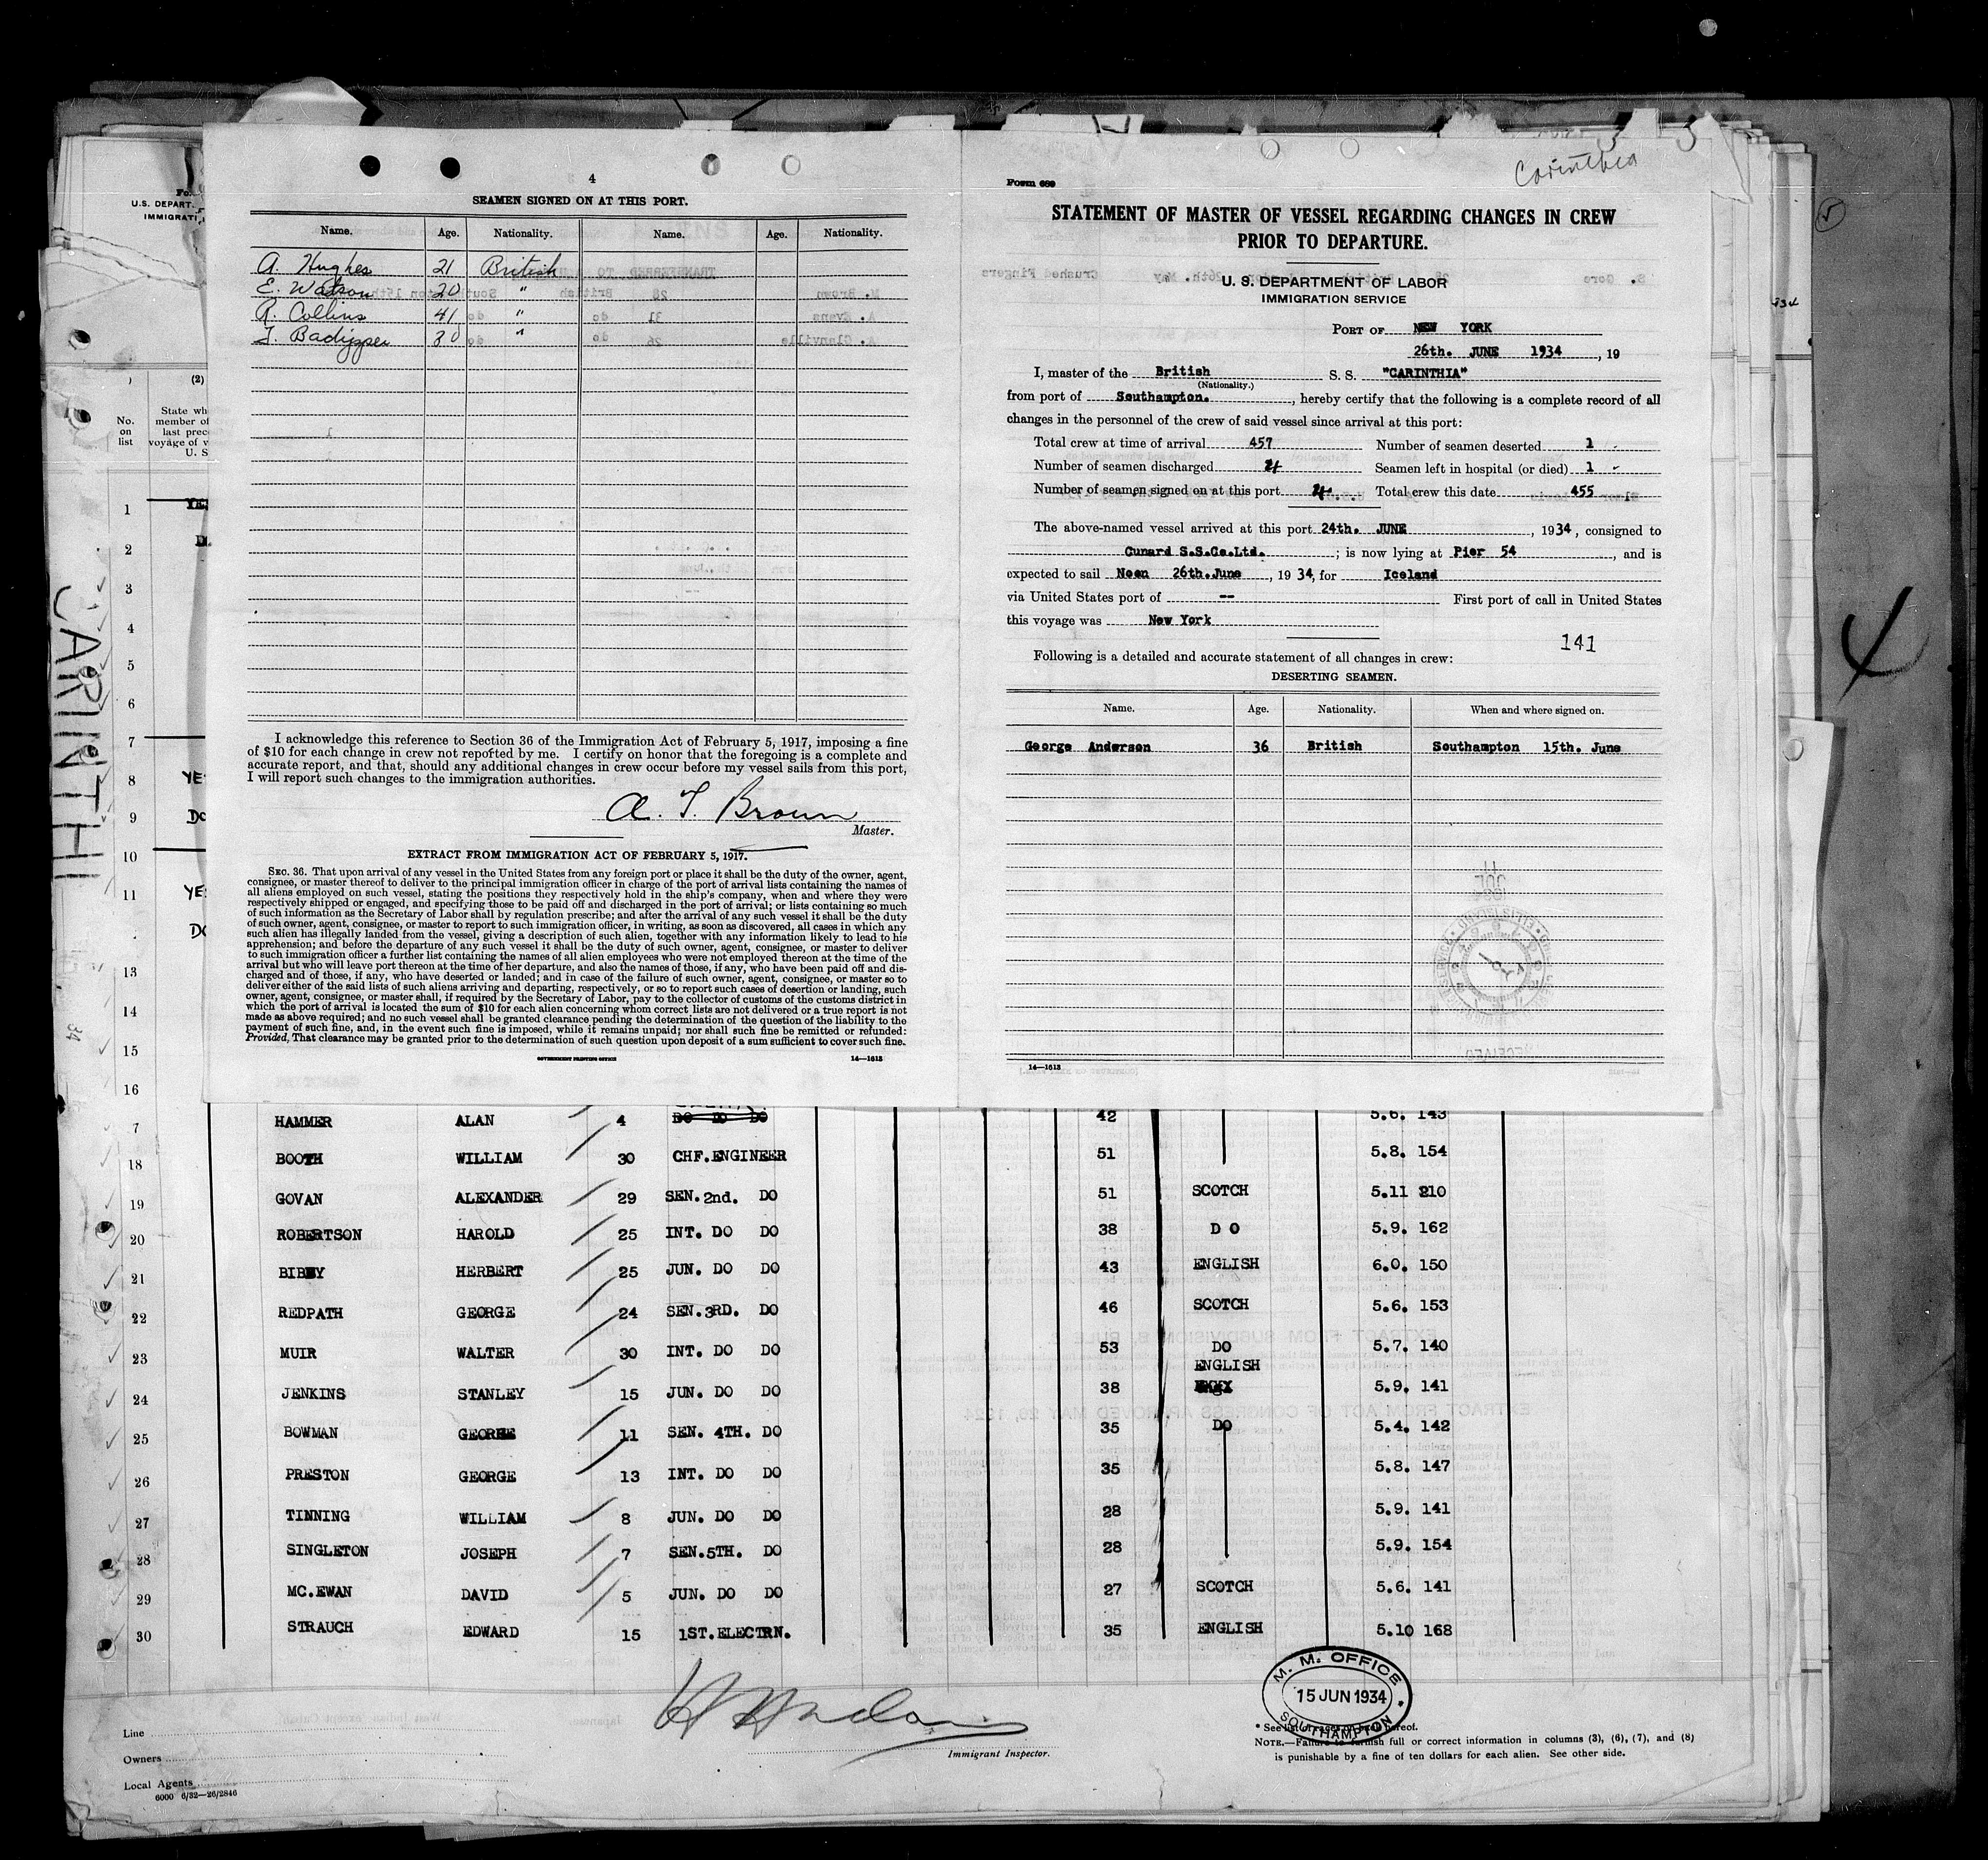 4
SEAMEN SIGNED ON AT THIS PORT.
Name. Age. Nationality. Name. Age. Nationality.
A. Hughes 21 British
E. Watson 20 "
R. Collins 41 "
30 "
I acknowledge this reference to Section 36 of the Immigration Act of February 5, 1917, imposing a fine
of $10 for each change in crew not reported by me. I certify on honor that the foregoing is a complete and
accurate report, and that, should any additional changes in crew occur before my vessel sails from this port,
I will report such changes to the immigration authorities.
A. T. Brown
Master.
EXTRACT FROM IMMIGRATION ACT OF FEBRUARY 5, 1917.
SEC. 36. That upon arrival of any vessel in the United States from any foreign port or place it shall be the duty of the owner, agent,
consignee, or master thereof to deliver to the principal immigration officer in charge of the port of arrival lists containing the names of
all aliens employed on such vessel, stating the positions they respectively hold in the ship's company, when and where they were
respectively shipped or engaged, and specifying those to be paid off and discharged in the port of arrival; or lists containing so much
of such information as the Secretary of Labor shall by regulation prescribe; and after the arrival of any such vessel it shall be the duty
of such owner, agent, consignee, or master to report to such immigration officer, in writing, as soon as discovered, all cases in which any
such alien has illegally landed from the vessel, giving a description of such alien, together with any information likely to lead to his
apprehension; and before the departure of any such vessel it shall be the duty of such owner, agent, consignee, or master to deliver
to such immigration officer a further list containing the names of all alien employees who were not employed thereon at the time of the
arrival but who will leave port thereon at the time of her departure, and also the names of those, if any, who have been paid off and dis-
charged and of those, if any, who have deserted or landed; and in case of the failure of such owner, agent, consignee, or master so to
deliver either of the said lists of such aliens arriving and departing, respectively, or so to report such cases of desertion or landing, such
owner, agent, consignee, or master shall, if required by the Secretary of Labor, pay to the collector of customs of the customs district in
which the port of arrival is located the sum of $10 for each alien concerning whom correct lists are not delivered or a true report is not
made as above required; and no such vessel shall be granted clearance pending the determination of the question of the liability to the
payment of such fine, and, in the event such fine is imposed, while it remains unpaid; nor shall such fine be remitted or refunded:
Provided, That clearance may be granted prior to the determination of such question upon deposit of a sum sufficient to cover such fine.
GOVERNMENT PRINTING OFFICE 14—1613
Carinthia
Form 689
STATEMENT OF MASTER OF VESSEL REGARDING CHANGES IN CREW
PRIOR TO DEPARTURE.
U. S. DEPARTMENT OF LABOR
IMMIGRATION SERVICE
PORT OF NEW YORK
26th. JUNE 1934, 19
I, master of the British S. S. "CARINTHIA"
(Nationality.)
from port of Southampton., hereby certify that the following is a complete record of all
changes in the personnel of the crew of said vessel since arrival at this port:
Total crew at time of arrival 457 Number of seamen deserted 1
Number of seamen discharged 4 Seamen left in hospital (or died) 1
Number of seamen signed on at this port 4 Total crew this date 455
The above-named vessel arrived at this port 24th. JUNE, 1934, consigned to
Cunard S.S.Co.Ltd.; is now lying at Pier 54, and is
expected to sail Noon 26th.June, 1934, for Iceland
via United States port of -- First port of call in United States
this voyage was New York
141
Following is a detailed and accurate statement of all changes in crew:
DESERTING SEAMEN.
Name. Age. Nationality. When and where signed on.
George Anderson 36 British Southampton 15th. June
14—1613
U.S. DEPART.
IMMIGRATI
(2)
No. on list
State wh
member of
last prec
voyage of v
U. S
CARINTHI
4
5
1 YES
2
3
4
5
6
7
8 YE
9 DO
10
11 YE
DO
13
14
15
16
7 HAMMER ALAN 4 DO DO DO 42 5.6. 143
18 BOOTH WILLIAM 30 CHF.ENGINEER 51 5.8. 154
19 GOVAN ALEXANDER 29 SEN.2nd. DO 51 SCOTCH 5.11 210
20 ROBERTSON HAROLD 25 INT. DO DO 38 D O 5.9. 162
21 BIBBY HERBERT 25 JUN. DO DO 43 ENGLISH 6.0. 150
22 REDPATH GEORGE 24 SEN.3RD. DO 46 SCOTCH 5.6. 153
23 MUIR WALTER 30 INT. DO DO 53 DO 5.7. 140
24 JENKINS STANLEY 15 JUN. DO DO 38 ENGLISH 5.9. 141
25 BOWMAN GEORGE 11 SEN. 4TH. DO 35 DO 5.4. 142
26 PRESTON GEORGE 13 INT. DO DO 35 5.8. 147
27 TINNING WILLIAM 8 JUN. DO DO 28 5.9. 141
28 SINGLETON JOSEPH 7 SEN.5TH. DO 28 5.9. 154
29 MC.EWAN DAVID 5 JUN. DO DO 27 SCOTCH 5.6. 141
30 STRAUCH EDWARD 15 1ST.ELECTRN. 35 ENGLISH 5.10 168
M. M. OFFICE
15 JUN 1934
SOUTHAMPTON
Line
Owners
Local Agents
6000 6/32—26/2846
Immigrant Inspector.
* See list of races on back hereof.
NOTE.—Failure to furnish full or correct information in columns (3), (6), (7), and (8)
is punishable by a fine of ten dollars for each alien. See other side.